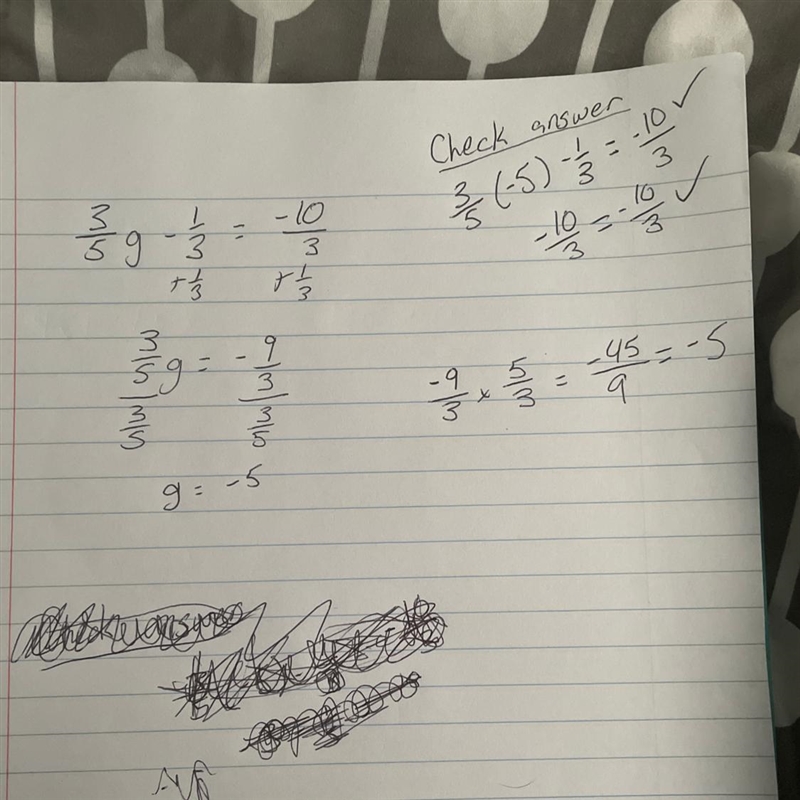 3/5 g - 1/3 = -10/3
+ 1/3 + 1/3
3/5 g = - 9/3
3/5 3/5
g = -5
Check answer
3/5 (-5) - 1/3 = -10/3 ✓
-10/3 = -10/3 ✓
-9/3 × 5/3 = -45/9 = -5